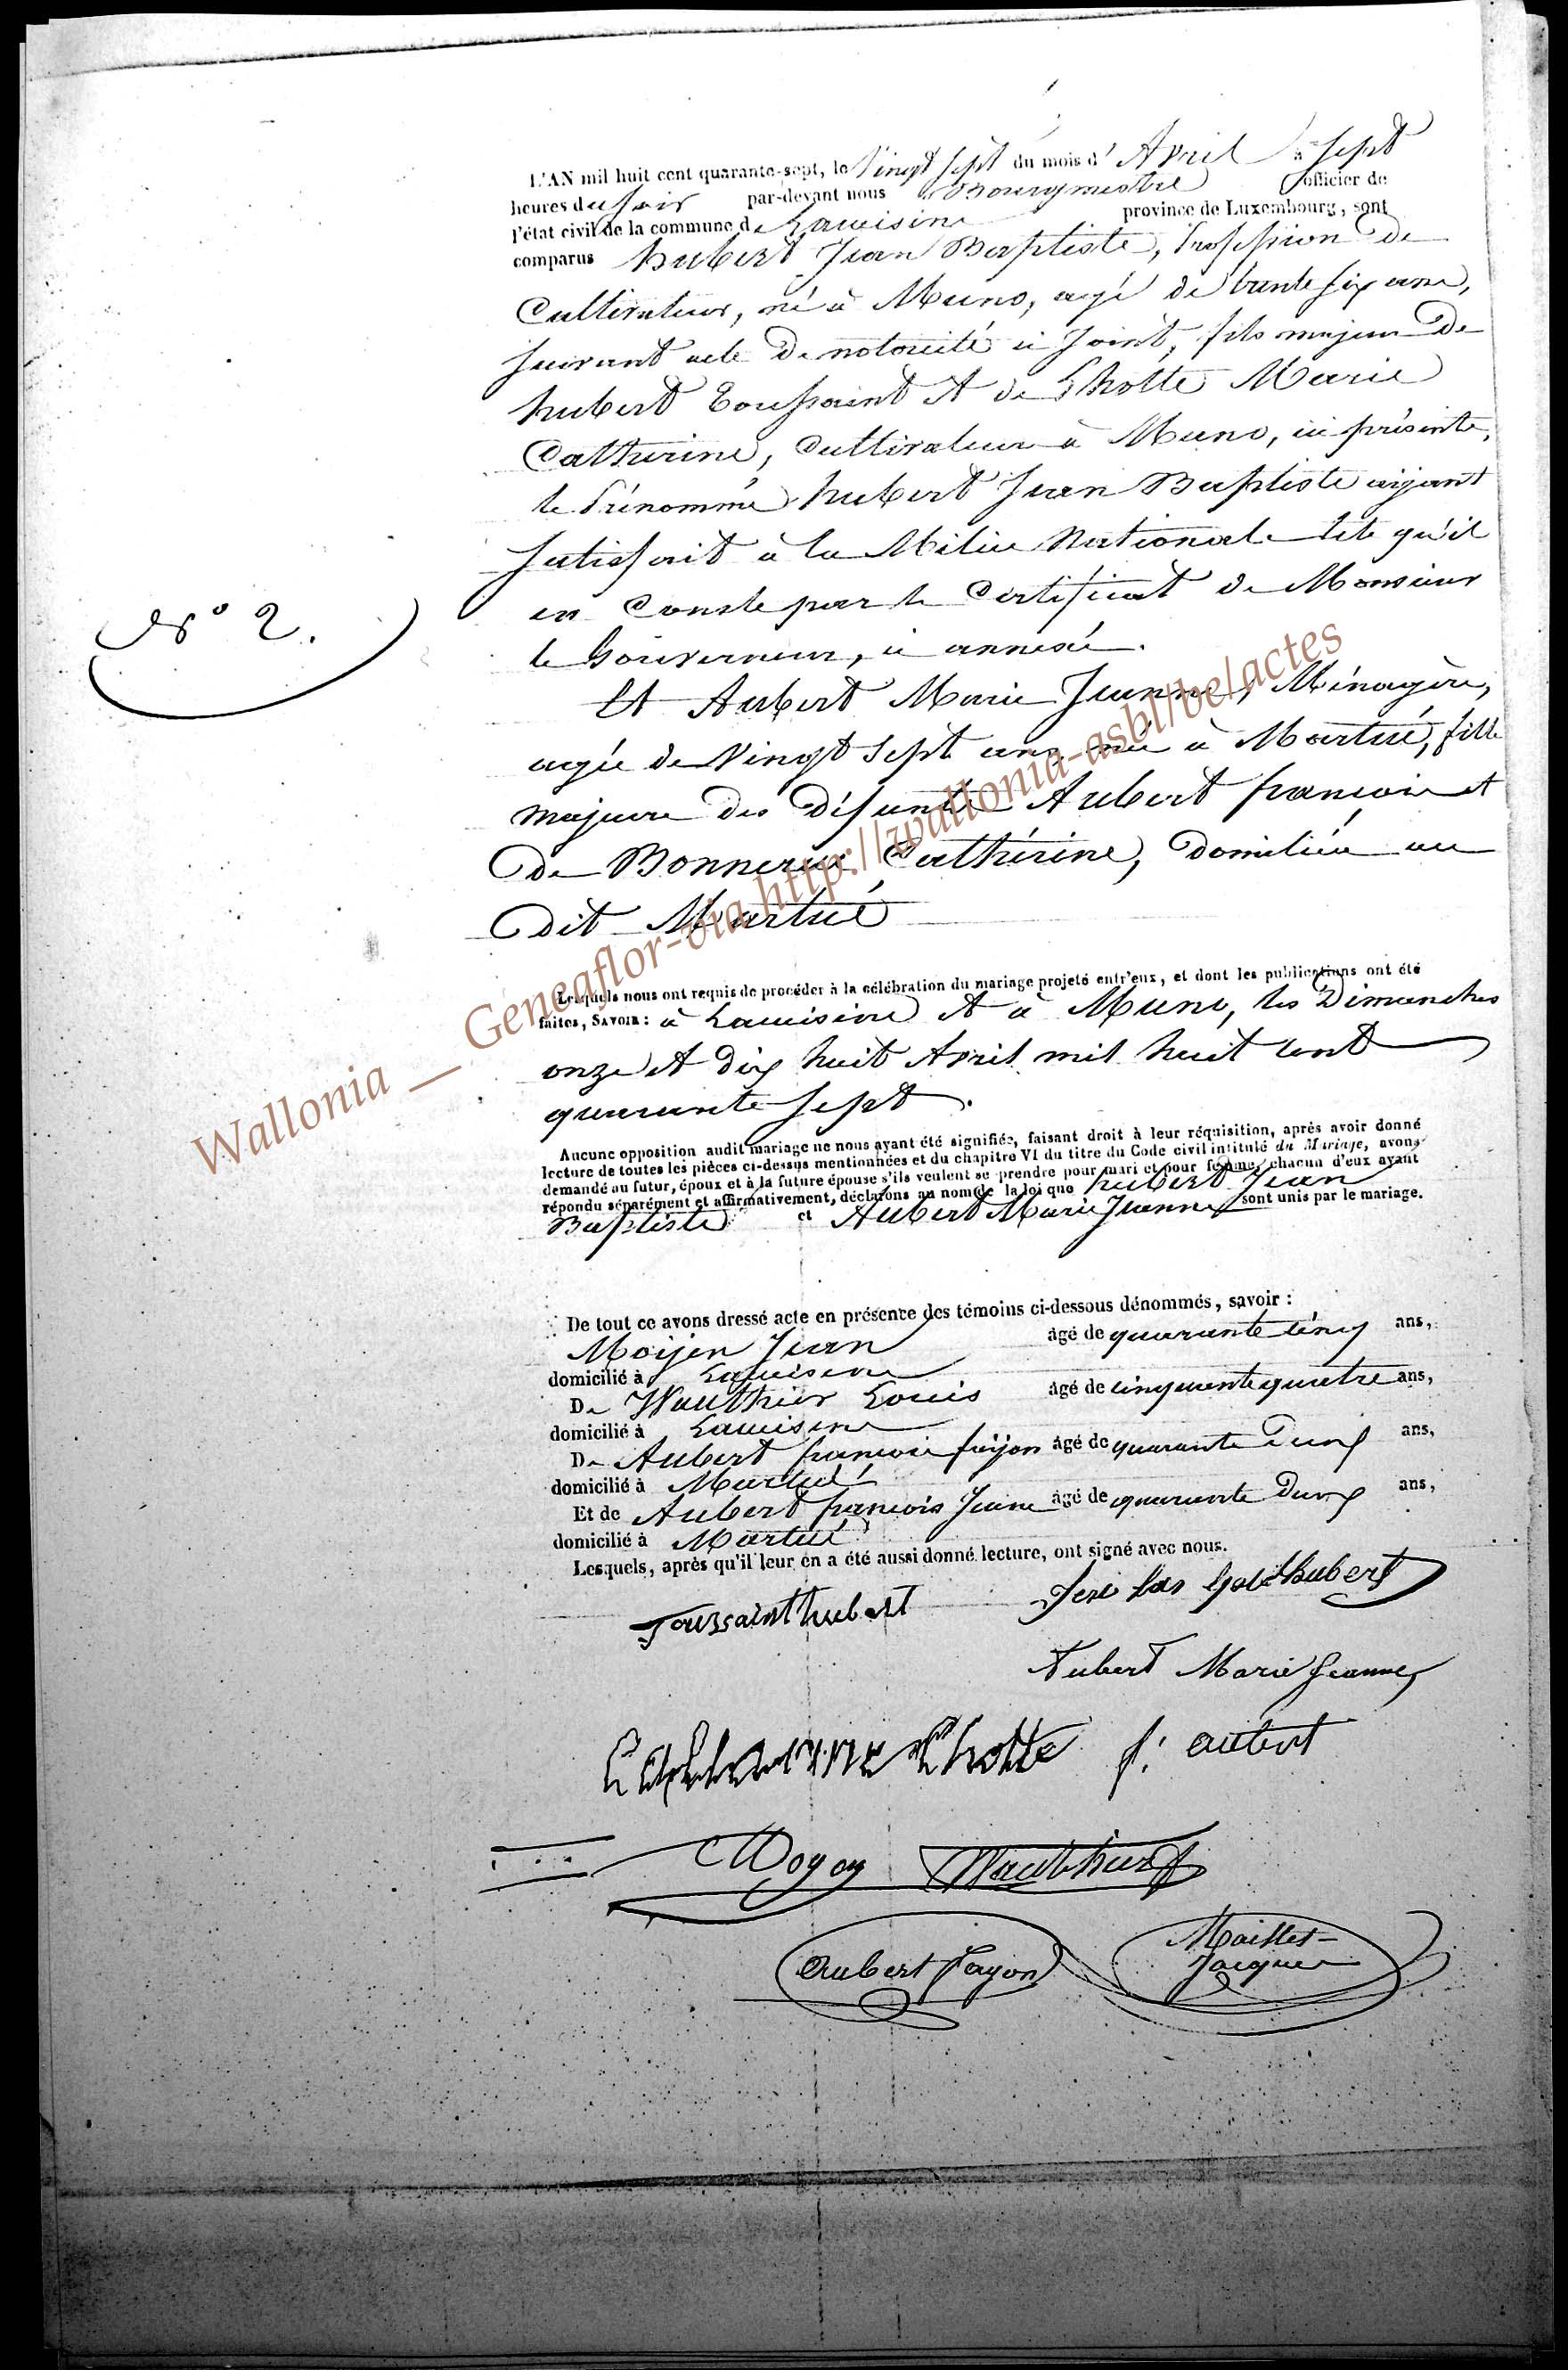 L'AN mil huit cent quarante-sept, le Vingt Sept du mois d' Avril à Sept
heures du soir par-devant nous Bourgmestre officier de
l'état civil de la commune de Lacuisine province de Luxembourg, sont
comparus hubert Jean Baptiste, Profession de
Cultivateur, né à Muno, agé de trente six ans,
suivant acte de notorieté ci Joint, fils majeur de
hubert Toussaint et de Lhotte Marie
Catherine, Cultivateur à Muno, ici présents,
le Prénommé hubert Jean Baptiste aijant
satisfait à la Milice Nationale tele qu'il
en Conste par le Certificat de Monsieur
N° 2.
le Gouverneur, ci annexé.
Et Aubert Marie Jeanne, Ménagère,
agée de Vingt Sept ans née à Martué, fille
majeure des défunts Aubert francois et
de Catherine, domiliée au
dit Martué
Lesquels nous ont requis de procéder à la célébration du mariage projeté entr'eux, et dont les publications ont été
faites, SAVOIR : à Lacuisine et à Muno, les Dimanches
onze et dix huit Avril mil huit cent
quarante sept.
Aucune opposition audit mariage ne nous ayant été signifiée, faisant droit à leur réquisition, après avoir donné
lecture de toutes les pièces ci-dessus mentionnées et du chapitre VI du titre du Code civil intitulé du Mariage, avons
demandé au futur, époux et à la future épouse s'ils veulent se prendre pour mari et pour femme, chacun d'eux ayant
répondu séparément et affirmativement, déclarons au nom de la loi que hubert Jean
Baptiste et Aubert Marie Jeanne sont unis par le mariage.
De tout ce avons dressé acte en présence des témoins ci-dessous dénommés, savoir :
Moijen Jean âgé de quarante cinq ans,
domicilié à Lacuisine
De Wauthier Louis âgé de cinquante quatre ans,
domicilié à Lacuisine
De Aubert francois faijon âgé de quarante Deux ans,
domicilié à Martué
Et de Aubert francois Jeune âgé de quarante Deux ans,
domicilié à Martué
Lesquels, après qu'il leur en a été aussi donné lecture, ont signé avec nous.
Toussaint hubert hubert
Aubert Marie Jeanne
Catherine Lhotte f. aubert
Moyen Wauthier
Aubert fayon Maillet
Jacques
Wallonia __ Geneaflor-via http://wallonia-asbl/be/actes